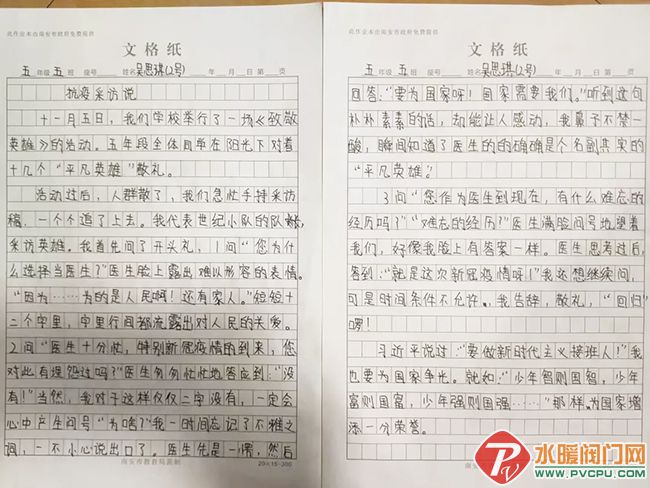 此作业本由南安市政府免费提供
文格纸
五年级五班 座号 姓名吴思琪(2号) 年 月 日第 页
抗疫采访说
十一月五日，我们学校举行了一场《致敬
英雄》的活动。五年段全体同学在阳光下对着
十几个“平凡英雄”敬礼。
活动过后，人群散了，我们急忙手持采访
稿，一个个追了上去。我代表世纪小队的队
采访英雄。我首先问了开头礼，1问“您为什
么选择当医生？”医生脸上露出难以形容的表情。
“因为……为的是人民啊！还有家人。”短短十
二个字里，字里行间都流露出对人民的关爱。
2问“医生十分忙，特别新冠疫情的到来，您
对此有埋怨过吗？”医生匆匆忙忙地答应到：“没
有！”当然，我对于这样仅仅二字没有，一定会
心中产生问号“为啥？”我一时间忘记了不雅之
词，一不小心说出口了。医生先是一愣，然后
南安市教育局监制
20×15=300
此作业本由南安市政府免费提供
文格纸
五年级五班 座号 姓名吴思琪(2号) 年 月 日第 页
回答：“要为国家呀！国家需要我们。”听到这句
朴朴素素的话，却能让人感动，我鼻子不禁一
酸，瞬间知道了医生的的确确是个名副其实的
“平凡英雄”。
3问“您作为医生到现在，有什么难忘的
经历吗？”“难忘的经历？”医生满脸问号地望着
我们，好像我脸上有答案一样。医生思考过后，
答到：“就是这次新冠疫情呀！”我还想继续问，
可是时间条件不允许。我告辞，敬礼，“回归”
啰！
习近平说过：“要做新时代主义接班人！”我
也要为国家争光。就如：“少年智则国智，少年
富则国富，少年强则国强……”那样。为国家增
添一分荣誉。
水暖阀门网
WWW.PVCPU.COM